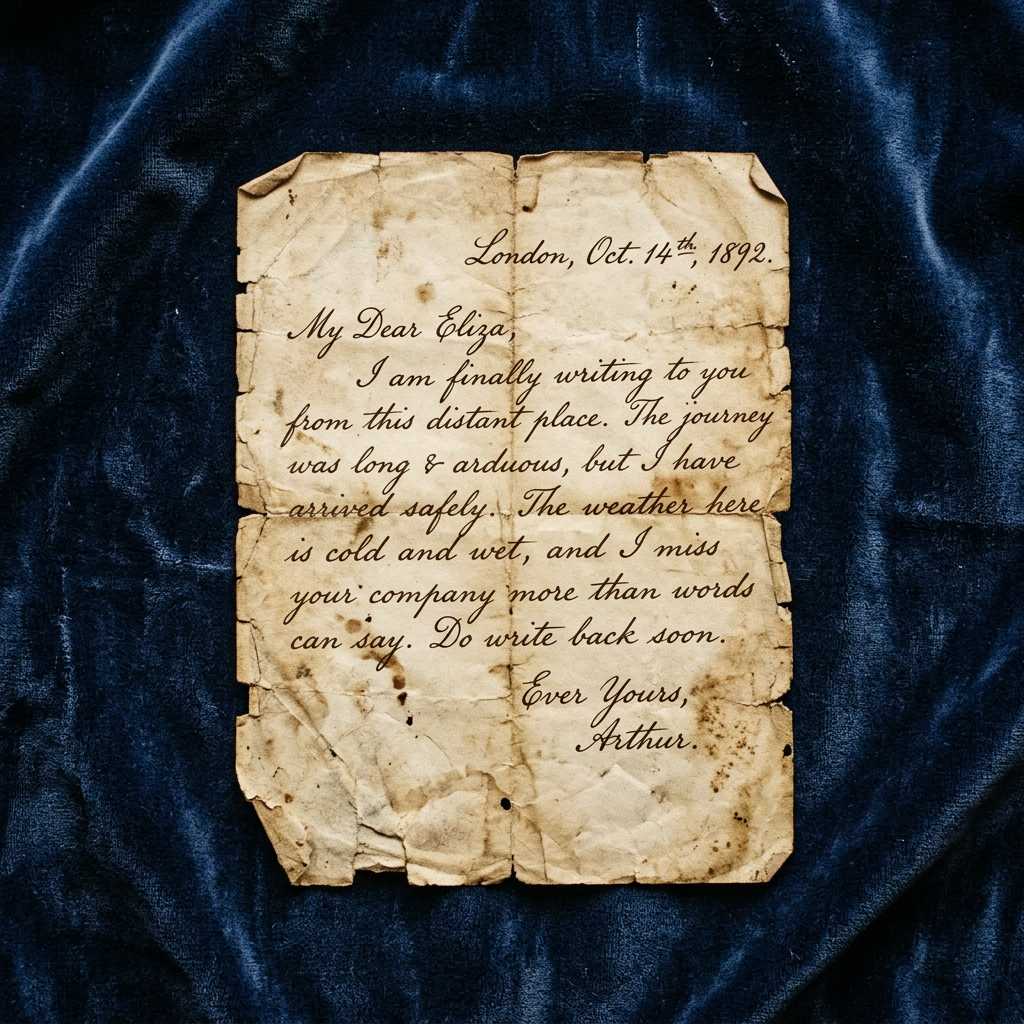 London, Oct. 14th, 1892.
My Dear Eliza,
I am finally writing to you
from this distant place. The journey
was long & arduous, but I have
arrived safely. The weather here
is cold and wet, and I miss
your company more than words
can say. Do write back soon.
Ever Yours,
Arthur.